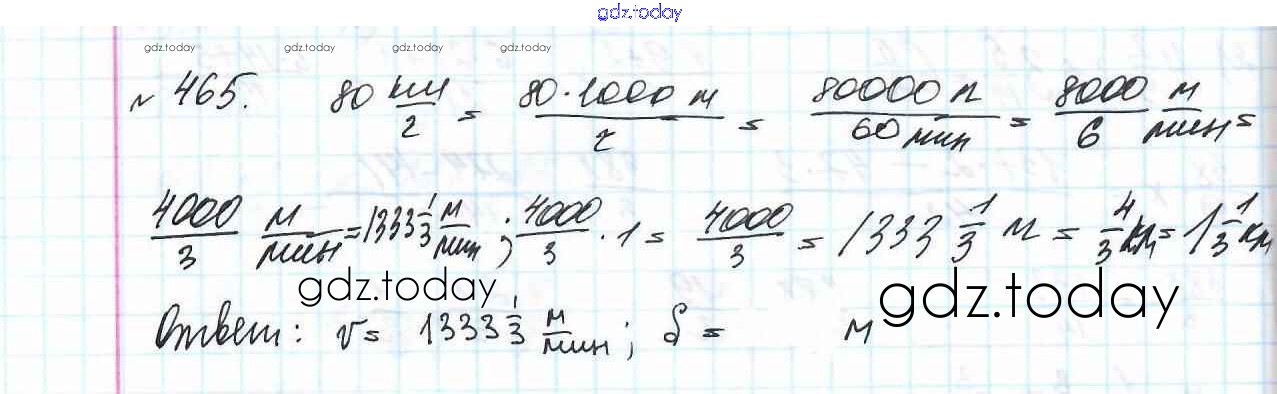 gdz.today
gdz.today gdz.today gdz.today gdz.today
№ 465. 80 км/г = 80·1000 м/г = 80000 м/60 мин = 8000/6 м/мин =
4000/3 м/мин = 1333 1/3 м/мин ; 4000/3 · 1 = 4000/3 = 1333 1/3 м = 4/3 км = 1 1/3 км
gdz.today gdz.today
Ответ: v = 1333 1/3 м/мин ; S = м